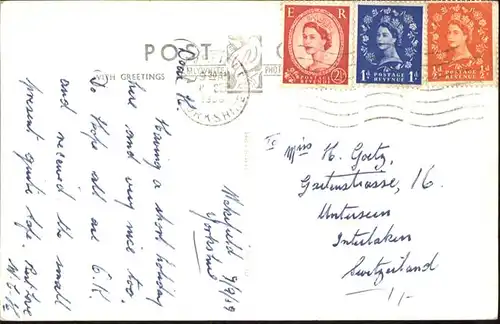 POST C
WITH GREETINGS
E R
POSTAGE REVENUE
2½D
1D POSTAGE REVENUE 1D
½D POSTAGE REVENUE ½D
YORKSHIRE
Wakefield
Yorkshire
9/9/59
Dear H.
Having a short holiday
here and very nice too.
Do hope all are O.K.
and received the small
present quite safe. Best Love
To Miss H. Goetz,
Gartenstrasse, 16.
Unterseen
Interlaken
Switzerland